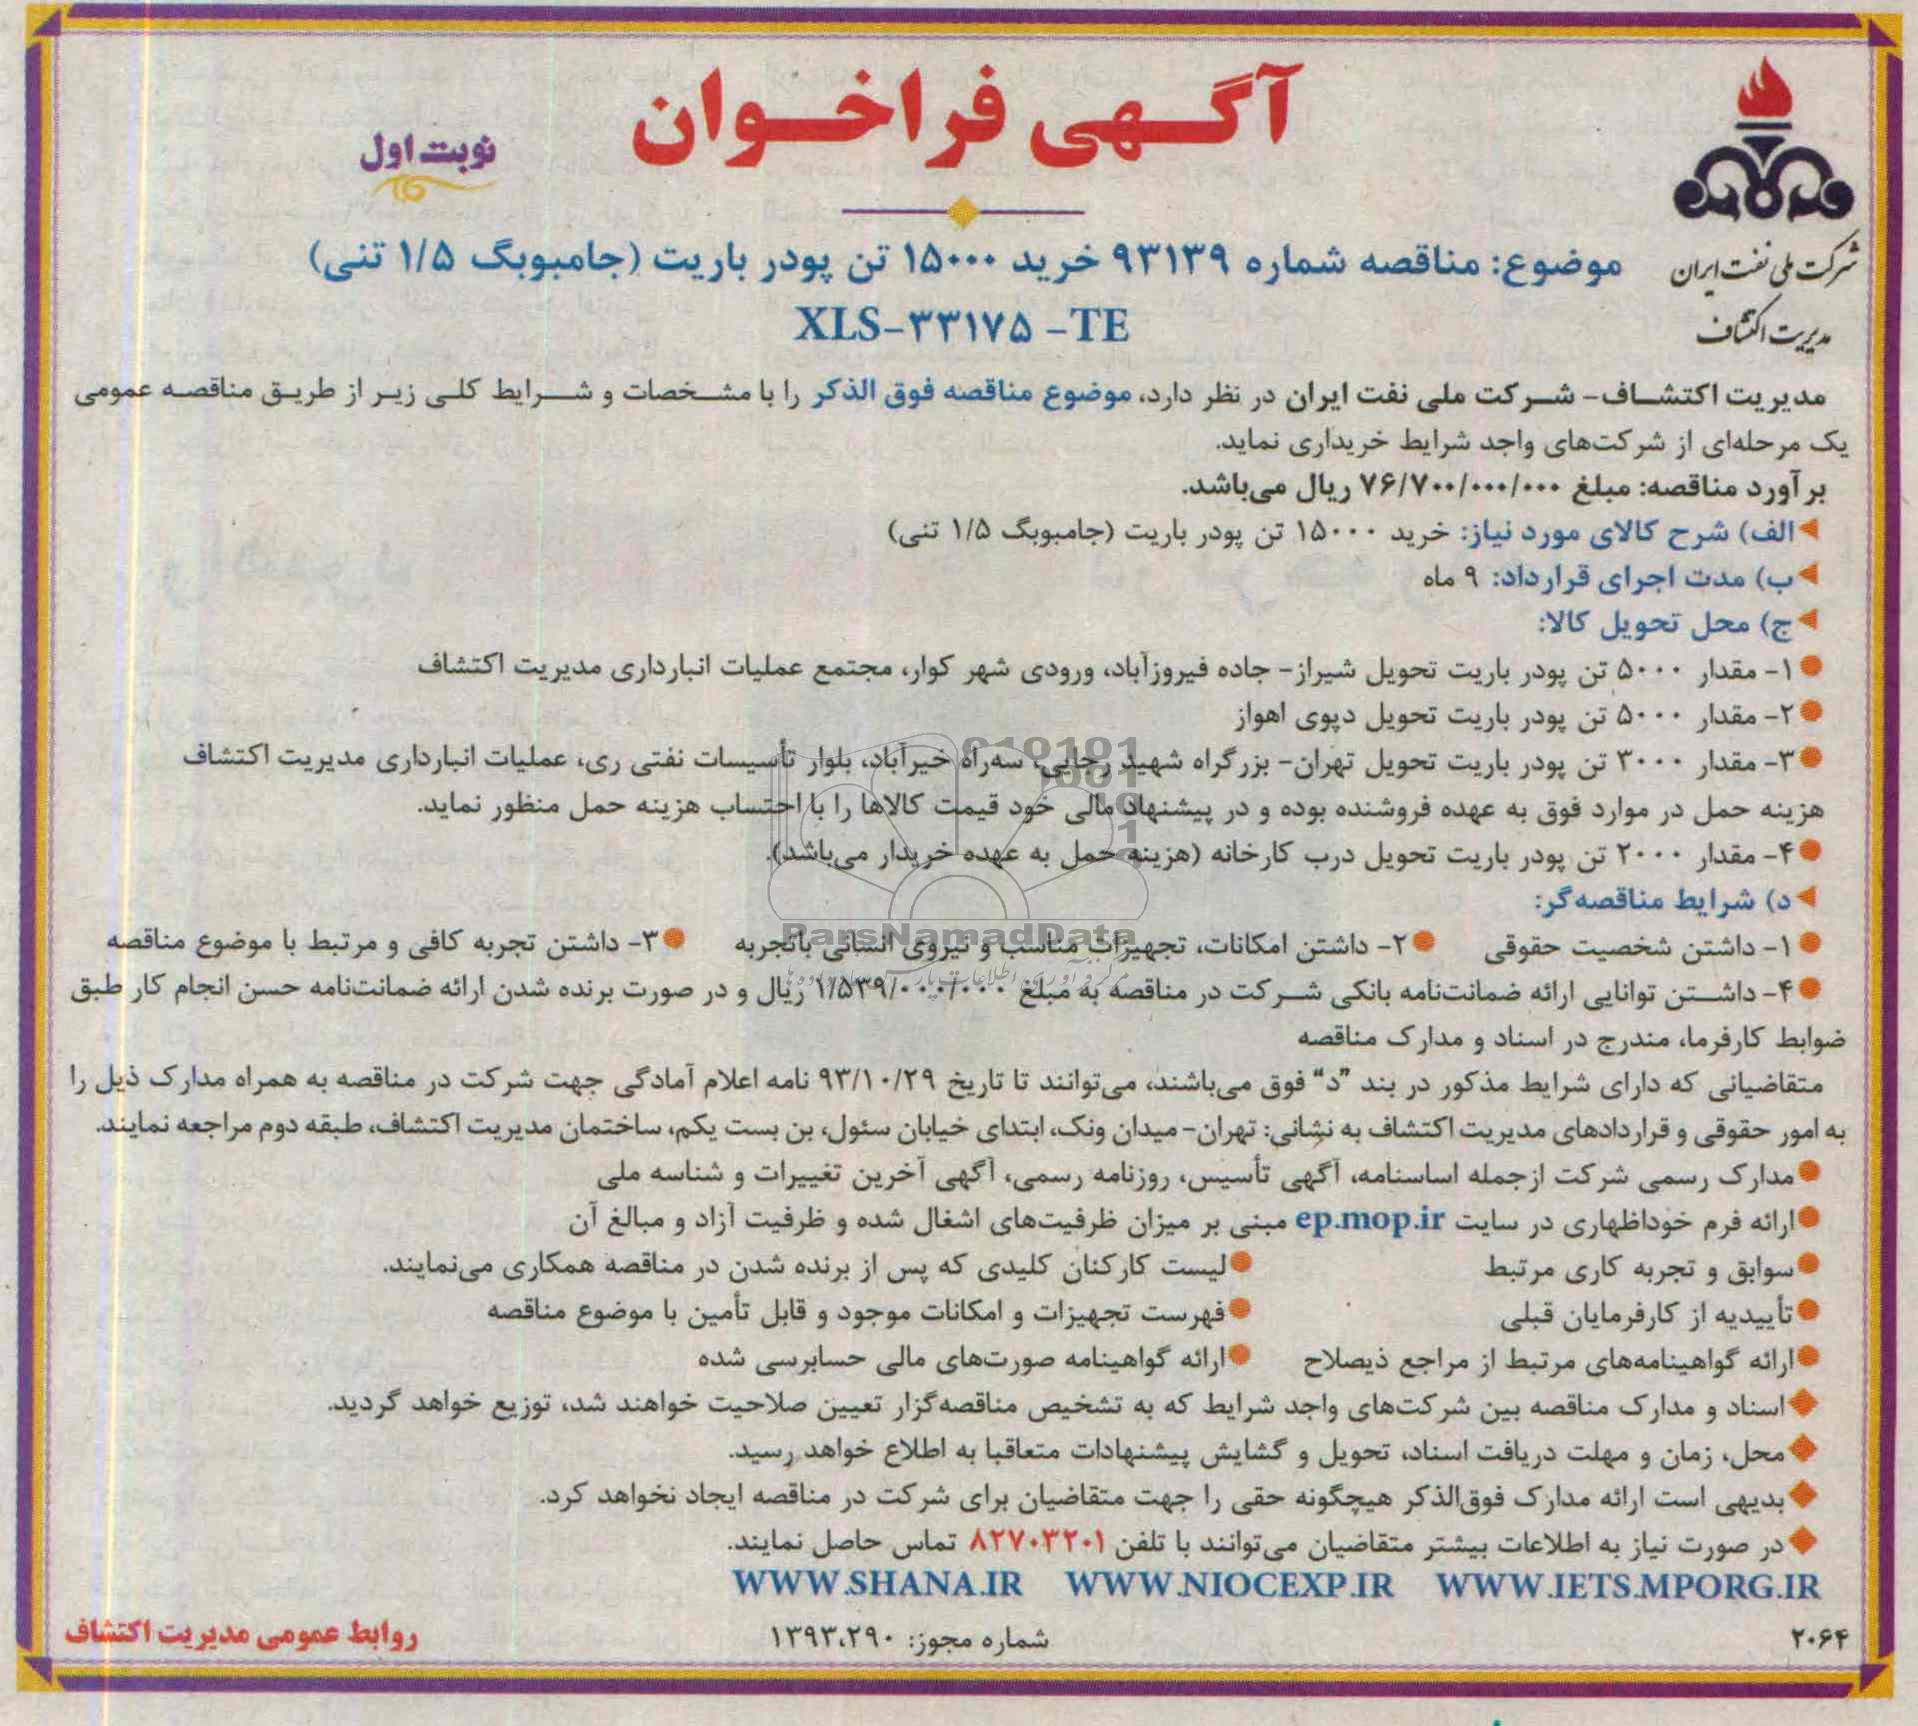 آگهی فراخوان
نوبت اول
شرکت ملی نفت ایران
مدیریت اکتشاف
موضوع: مناقصه شماره ۹۳۱۳۹ خرید ۱۵۰۰۰ تن پودر باریت (جامبوبگ ۱/۵ تنی)
XLS-۳۳۱۷۵ -TE
مدیریت اکتشاف- شرکت ملی نفت ایران در نظر دارد، موضوع مناقصه فوق الذکر را با مشخصات و شرایط کلی زیر از طریق مناقصه عمومی
یک مرحله‌ای از شرکت‌های واجد شرایط خریداری نماید.
برآورد مناقصه: مبلغ ۷۶/۷۰۰/۰۰۰/۰۰۰ ریال می‌باشد.
الف) شرح کالای مورد نیاز: خرید ۱۵۰۰۰ تن پودر باریت (جامبوبگ ۱/۵ تنی)
ب) مدت اجرای قرارداد: ۹ ماه
ج) محل تحویل کالا:
۱- مقدار ۵۰۰۰ تن پودر باریت تحویل شیراز- جاده فیروزآباد، ورودی شهر کوار، مجتمع عملیات انبارداری مدیریت اکتشاف
۲- مقدار ۵۰۰۰ تن پودر باریت تحویل دپوی اهواز
۳- مقدار ۳۰۰۰ تن پودر باریت تحویل تهران- بزرگراه شهید رجایی، سه‌راه خیرآباد، بلوار تأسیسات نفتی ری، عملیات انبارداری مدیریت اکتشاف
هزینه حمل در موارد فوق به عهده فروشنده بوده و در پیشنهاد مالی خود قیمت کالاها را با احتساب هزینه حمل منظور نماید.
۴- مقدار ۲۰۰۰ تن پودر باریت تحویل درب کارخانه (هزینه حمل به عهده خریدار می‌باشد).
د) شرایط مناقصه‌گر:
۱- داشتن شخصیت حقوقی ۲- داشتن امکانات، تجهیزات مناسب و نیروی انسانی باتجربه ۳- داشتن تجربه کافی و مرتبط با موضوع مناقصه
ParsNamadData
۴- داشتن توانایی ارائه ضمانت‌نامه بانکی شرکت در مناقصه به مبلغ ۱/۵۳۹/۰۰۰/۰۰۰ ریال و در صورت برنده شدن ارائه ضمانت‌نامه حسن انجام کار طبق
ضوابط کارفرما، مندرج در اسناد و مدارک مناقصه
متقاضیانی که دارای شرایط مذکور در بند "د" فوق می‌باشند، می‌توانند تا تاریخ ۹۳/۱۰/۲۹ نامه اعلام آمادگی جهت شرکت در مناقصه به همراه مدارک ذیل را
به امور حقوقی و قراردادهای مدیریت اکتشاف به نشانی: تهران- میدان ونک، ابتدای خیابان سئول، بن بست یکم، ساختمان مدیریت اکتشاف، طبقه دوم مراجعه نمایند.
مدارک رسمی شرکت ازجمله اساسنامه، آگهی تأسیس، روزنامه رسمی، آگهی آخرین تغییرات و شناسه ملی
ارائه فرم خوداظهاری در سایت ep.mop.ir مبنی بر میزان ظرفیت‌های اشغال شده و ظرفیت آزاد و مبالغ آن
سوابق و تجربه کاری مرتبط لیست کارکنان کلیدی که پس از برنده شدن در مناقصه همکاری می‌نمایند.
تأییدیه از کارفرمایان قبلی فهرست تجهیزات و امکانات موجود و قابل تأمین با موضوع مناقصه
ارائه گواهینامه‌های مرتبط از مراجع ذیصلاح ارائه گواهینامه صورت‌های مالی حسابرسی شده
اسناد و مدارک مناقصه بین شرکت‌های واجد شرایط که به تشخیص مناقصه‌گزار تعیین صلاحیت خواهند شد، توزیع خواهد گردید.
محل، زمان و مهلت دریافت اسناد، تحویل و گشایش پیشنهادات متعاقبا به اطلاع خواهد رسید.
بدیهی است ارائه مدارک فوق‌الذکر هیچگونه حقی را جهت متقاضیان برای شرکت در مناقصه ایجاد نخواهد کرد.
در صورت نیاز به اطلاعات بیشتر متقاضیان می‌توانند با تلفن ۸۲۷۰۳۲۰۱ تماس حاصل نمایند.
WWW.SHANA.IR WWW.NIOCEXP.IR WWW.IETS.MPORG.IR
۲۰۶۴ شماره مجوز: ۱۳۹۳،۲۹۰ روابط عمومی مدیریت اکتشاف